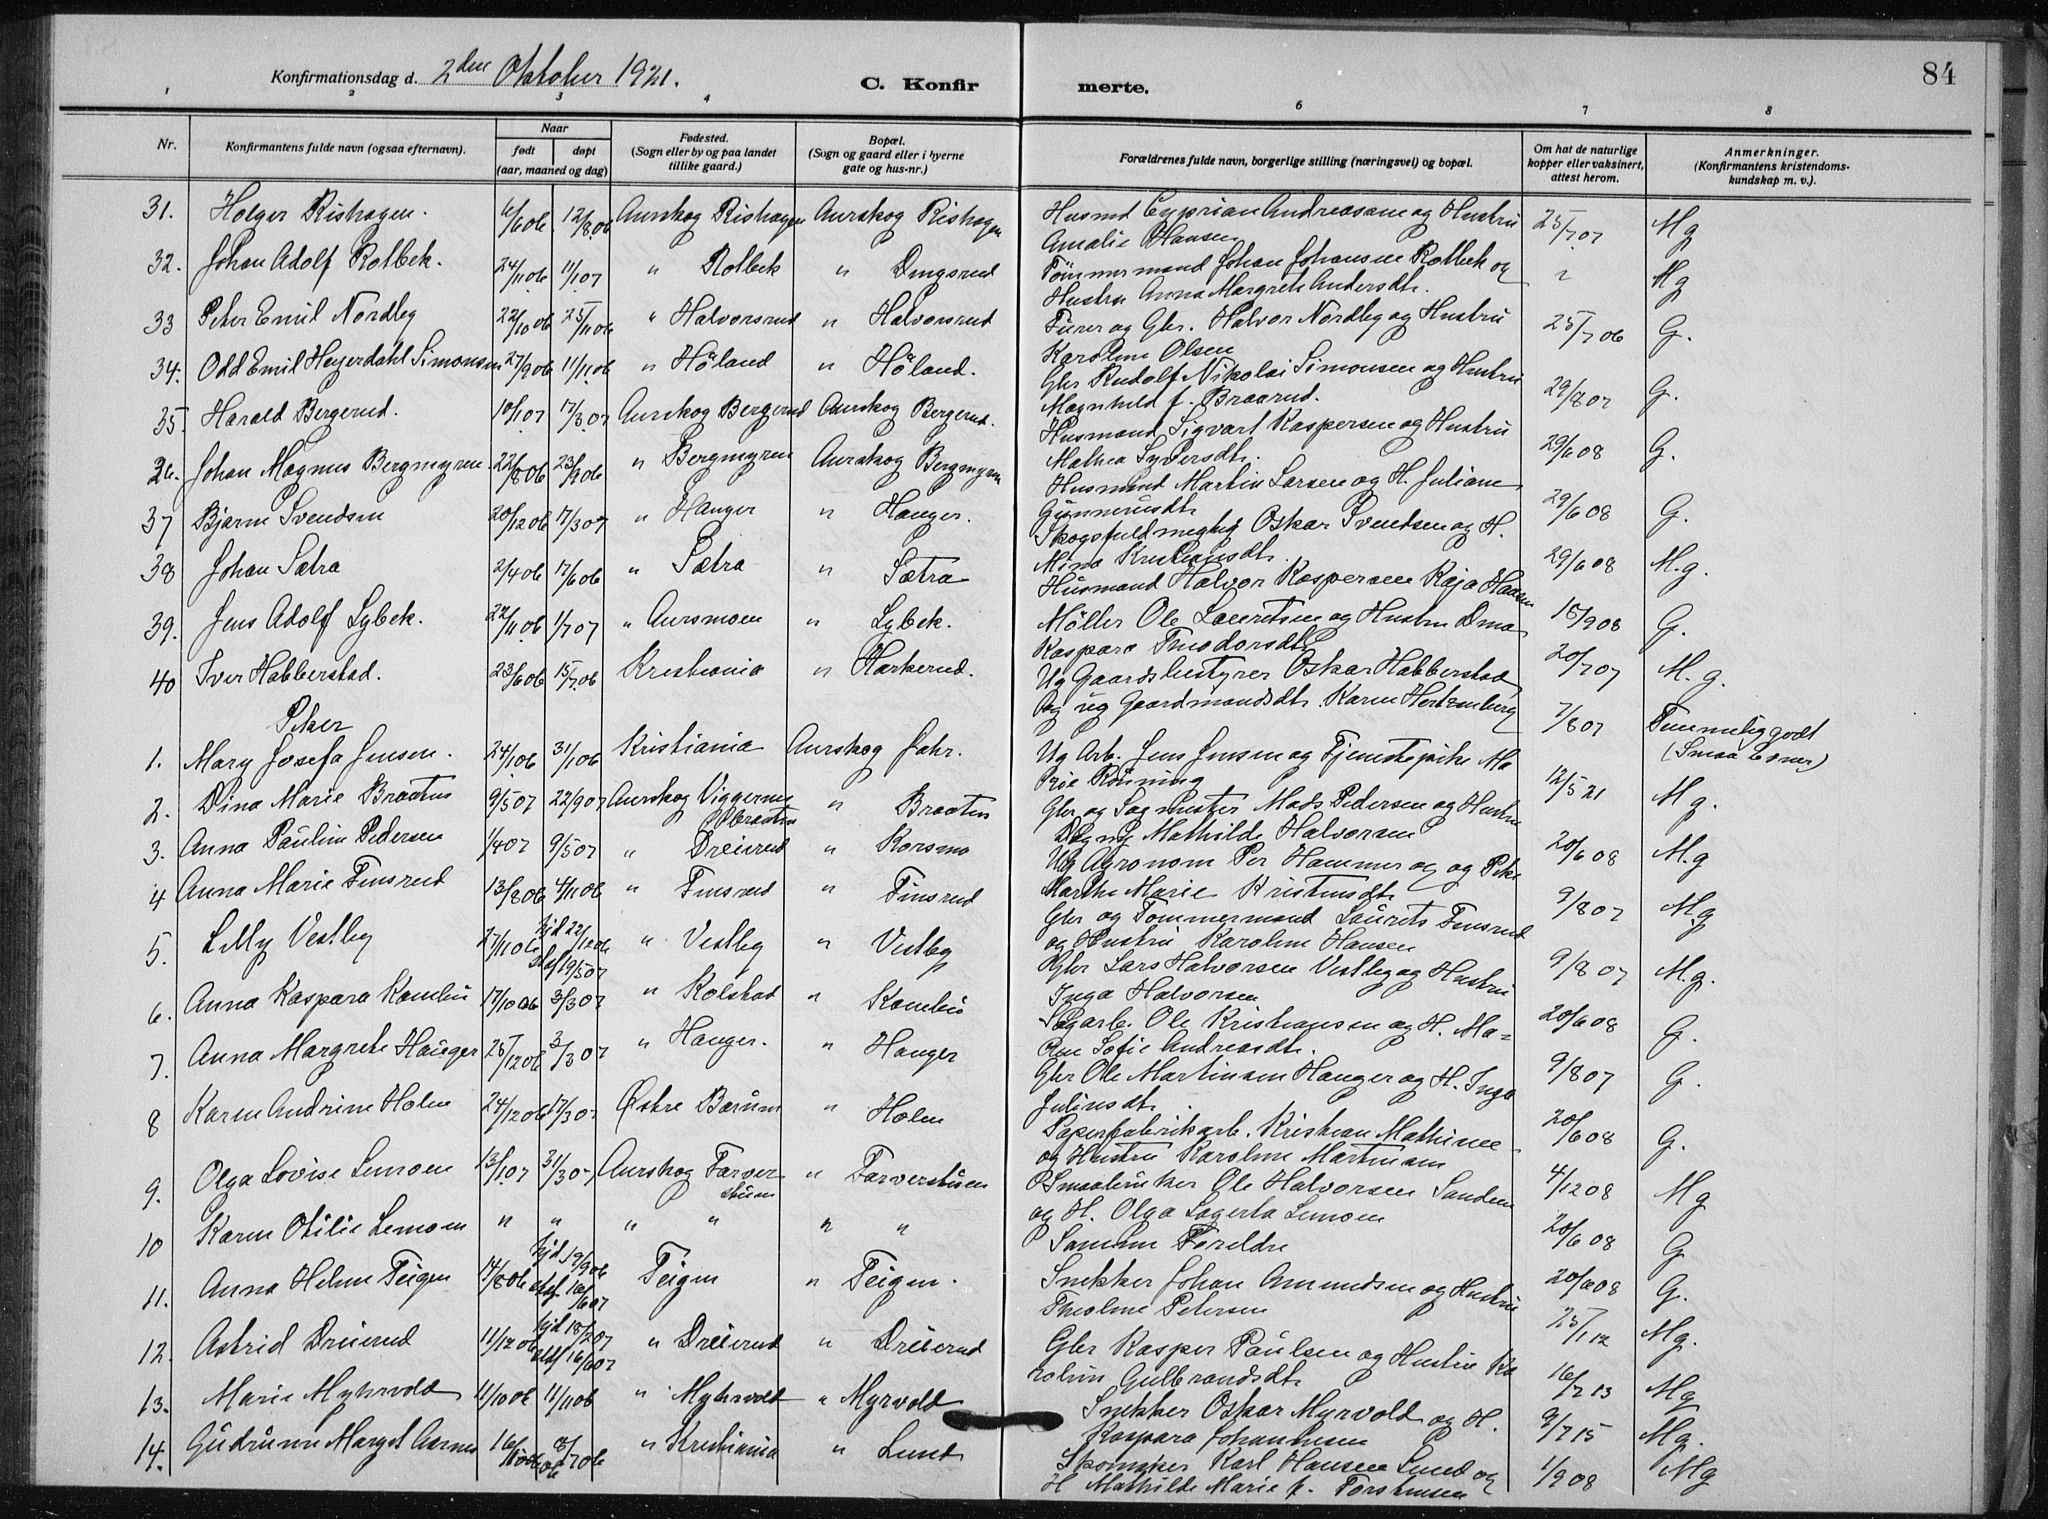 Konfirmationsdag d. 2den Oktober 1921. C. Konfirmerte. 84
1 2 3 4 6 7 8
Nr. Konfirmantens fulde navn (ogsaa efternavn). Naar født døpt (aar, maaned og dag) Fødested. (Sogn eller by og paa landet tillike gaard.) Bopæl. (Sogn og gaard eller i byerne gate og hus-nr.) Forældrenes fulde navn, borgerlige stilling (næringsvei) og bopæl. Om hat de naturlige kopper eller vaksinert, attest herom. Anmerkninger. (Konfirmantens kristendoms-kundskap m. v.).
31. Holger Rishagen. 6/6 06 12/8 06 Aurskog Rishagen Aurskog Rishagen Husmd Cyprian Andreasen og Hustru Amalie Hansen 25/7 07 Mg
32. Johan Adolf Rotbek. 24/11 06 1/1 07 " Rotbek " Dingsrud Tömmermand Johan Johansen Rotbek og Hustru Anna Margrete Andersdtr. Mg
33 Peter Emil Nordby 22/10 06 25/11 06 " Halvorsrud " Halvorsrud og Gbr. Halvor Nordby og Hustru Karoline Olsen 25/7 06 G.
34. Odd Emil Heyerdahl Simonsen 27/9 06 11/11 06 " Höland " Höland. Gbr Rudolf Nikolai Simonsen og Hustru Magnhild f. Braarud. 29/8 07 G.
35. Harald Bergerud. 10/1 07 17/3 07 Aurskog Bergerud Aurskog Bergerud. Husmand Sigvart Kaspersen og Hustru Mathea Syversdtr. 29/6 08 G.
36. Johan Magnus Bergmyren 22/8 06 23/9 06 " Bergmyren Aurskog Bergmyren Husmand Martin Larsen og H. Juliane Gunneriusdtr 29/6 08 G.
37 Bjarne Svendsen 20/12 06 17/3 07 " Hanger " Hanger. Skogsfuldmegtig Oskar Svendsen og H. Mina Kristiansdtr. 29/6 08 M.g.
38 Johan Sætra 2/4 06 17/6 06 " Sætra " Sætra Husmand Halvor Kaspersen Kaja Hansen
39. Jens Adolf Lybek. 22/11 06 1/7 07 " Aursmoen " Lybek. Möller Ole Lauritsen og Hustru Dina Kaspara Theodorsdtr 15/9 08 G.
40 Iver Habberstad. 23/6 06 15/7 06 Kristiania " Harkerud. Ug Gaardsbestyrer Oskar Habberstad og ug Gaardmandsdtr. Karen Hertzenberg 20/7 07 M.g.
Piker
1. Mary Josefa Jensen. 24/1 06 31/1 06 Kristiania Aurskog Fahr. Ug Arb. Jens Jensen og Tjenestepike Ma- 7/8 07 Temmelig godt (Smaa Evner)
2. Dina Marie Braaten 9/5 07 22/9 07 Aurskog Viggernes braaten " Braaten Gbr og Sagmester Mads Pedersen og Hustru Dagny Mathilde Halvorsen 12/5 21 Mg.
3. Anna Pauline Pedersen 1/4 07 9/5 07 " Dreierud " Korsmo Ug Agronom Per Hammer og ug Pike Marthe Marie Kristensdtr. 20/6 08 M.g
4 Anna Marie Finsrud 13/8 06 4/11 06 " Finsrud " Finsrud Gbr og Tömmermand Laurits Finsrud og Hustru Karoline Hansen 9/8 07 Mg
5. Lilly Vestby 27/11 06 hjd 22/12 06 staf 19/5 07 " Vestby " Vestby Gbr Lars Halvorsen Vestby og Hustru Inga Halvorsen 9/8 07 M.g.
6. Anna Kaspara Kambö 17/10 06 3/3 07 " Kolstad " Kambö Sagarb. Ole Kristiansen og H. Ma- ren Sofie Andreasdtr. 20/6 08 G.
7. Anna Margrete Hauger 25/12 06 3/3 07 " Hanger. " Hanger Gbr Ole Martinsen Hanger og H. Inga Juliusdtr. 9/8 07 G.
8 Karen Andrine Holen 24/12 06 17/3 07 Østre Bærum " Holen Papirfabrikarb. Kristian Mathisen og Hustru Karoline Martinsen 20/6 08 G.
9. Olga Lovise Lemoen 13/1 07 31/3 07 Aurskog Farverstuen " Farverstuen Smaabruker Ole Halvorsen Sanden og H. Olga Lagerta Lemoen 4/12 08 Mg
10 Karen Otilie Lemoen " " " " " " Samme Foreldre 20/6 08 G
11. Anna Helene Teigen 14/8 06 hjd 19/9 06 staf 10/6 07 Teigen " Teigen. Snekker Johan Amundsen og Hustru Theoline Petersen 20/6 08 G.
12. Astrid Dreierud 11/12 06 hjd 18/2 07 staf 16/6 07 " Dreierud " Dreierud Gbr Kasper Paulsen og Hustru Ka- roline Gulbrandsdtr 25/1 12 Mg.
13. Marie Myhrvold 11/10 06 11/11 06 " Myhrvold " Myrvold Snekker Oskar Myrvold og H. Kaspara Johannesen 16/7 13 Mg 9/7 15 Mg.
14. Gudrunn Margot Aarnes 16/1 06 8/7 06 " Kristiania " Lund Skomaker Karl Hansen Lund og H Mathilde Marie f. Torstensen 1/9 08 Mg